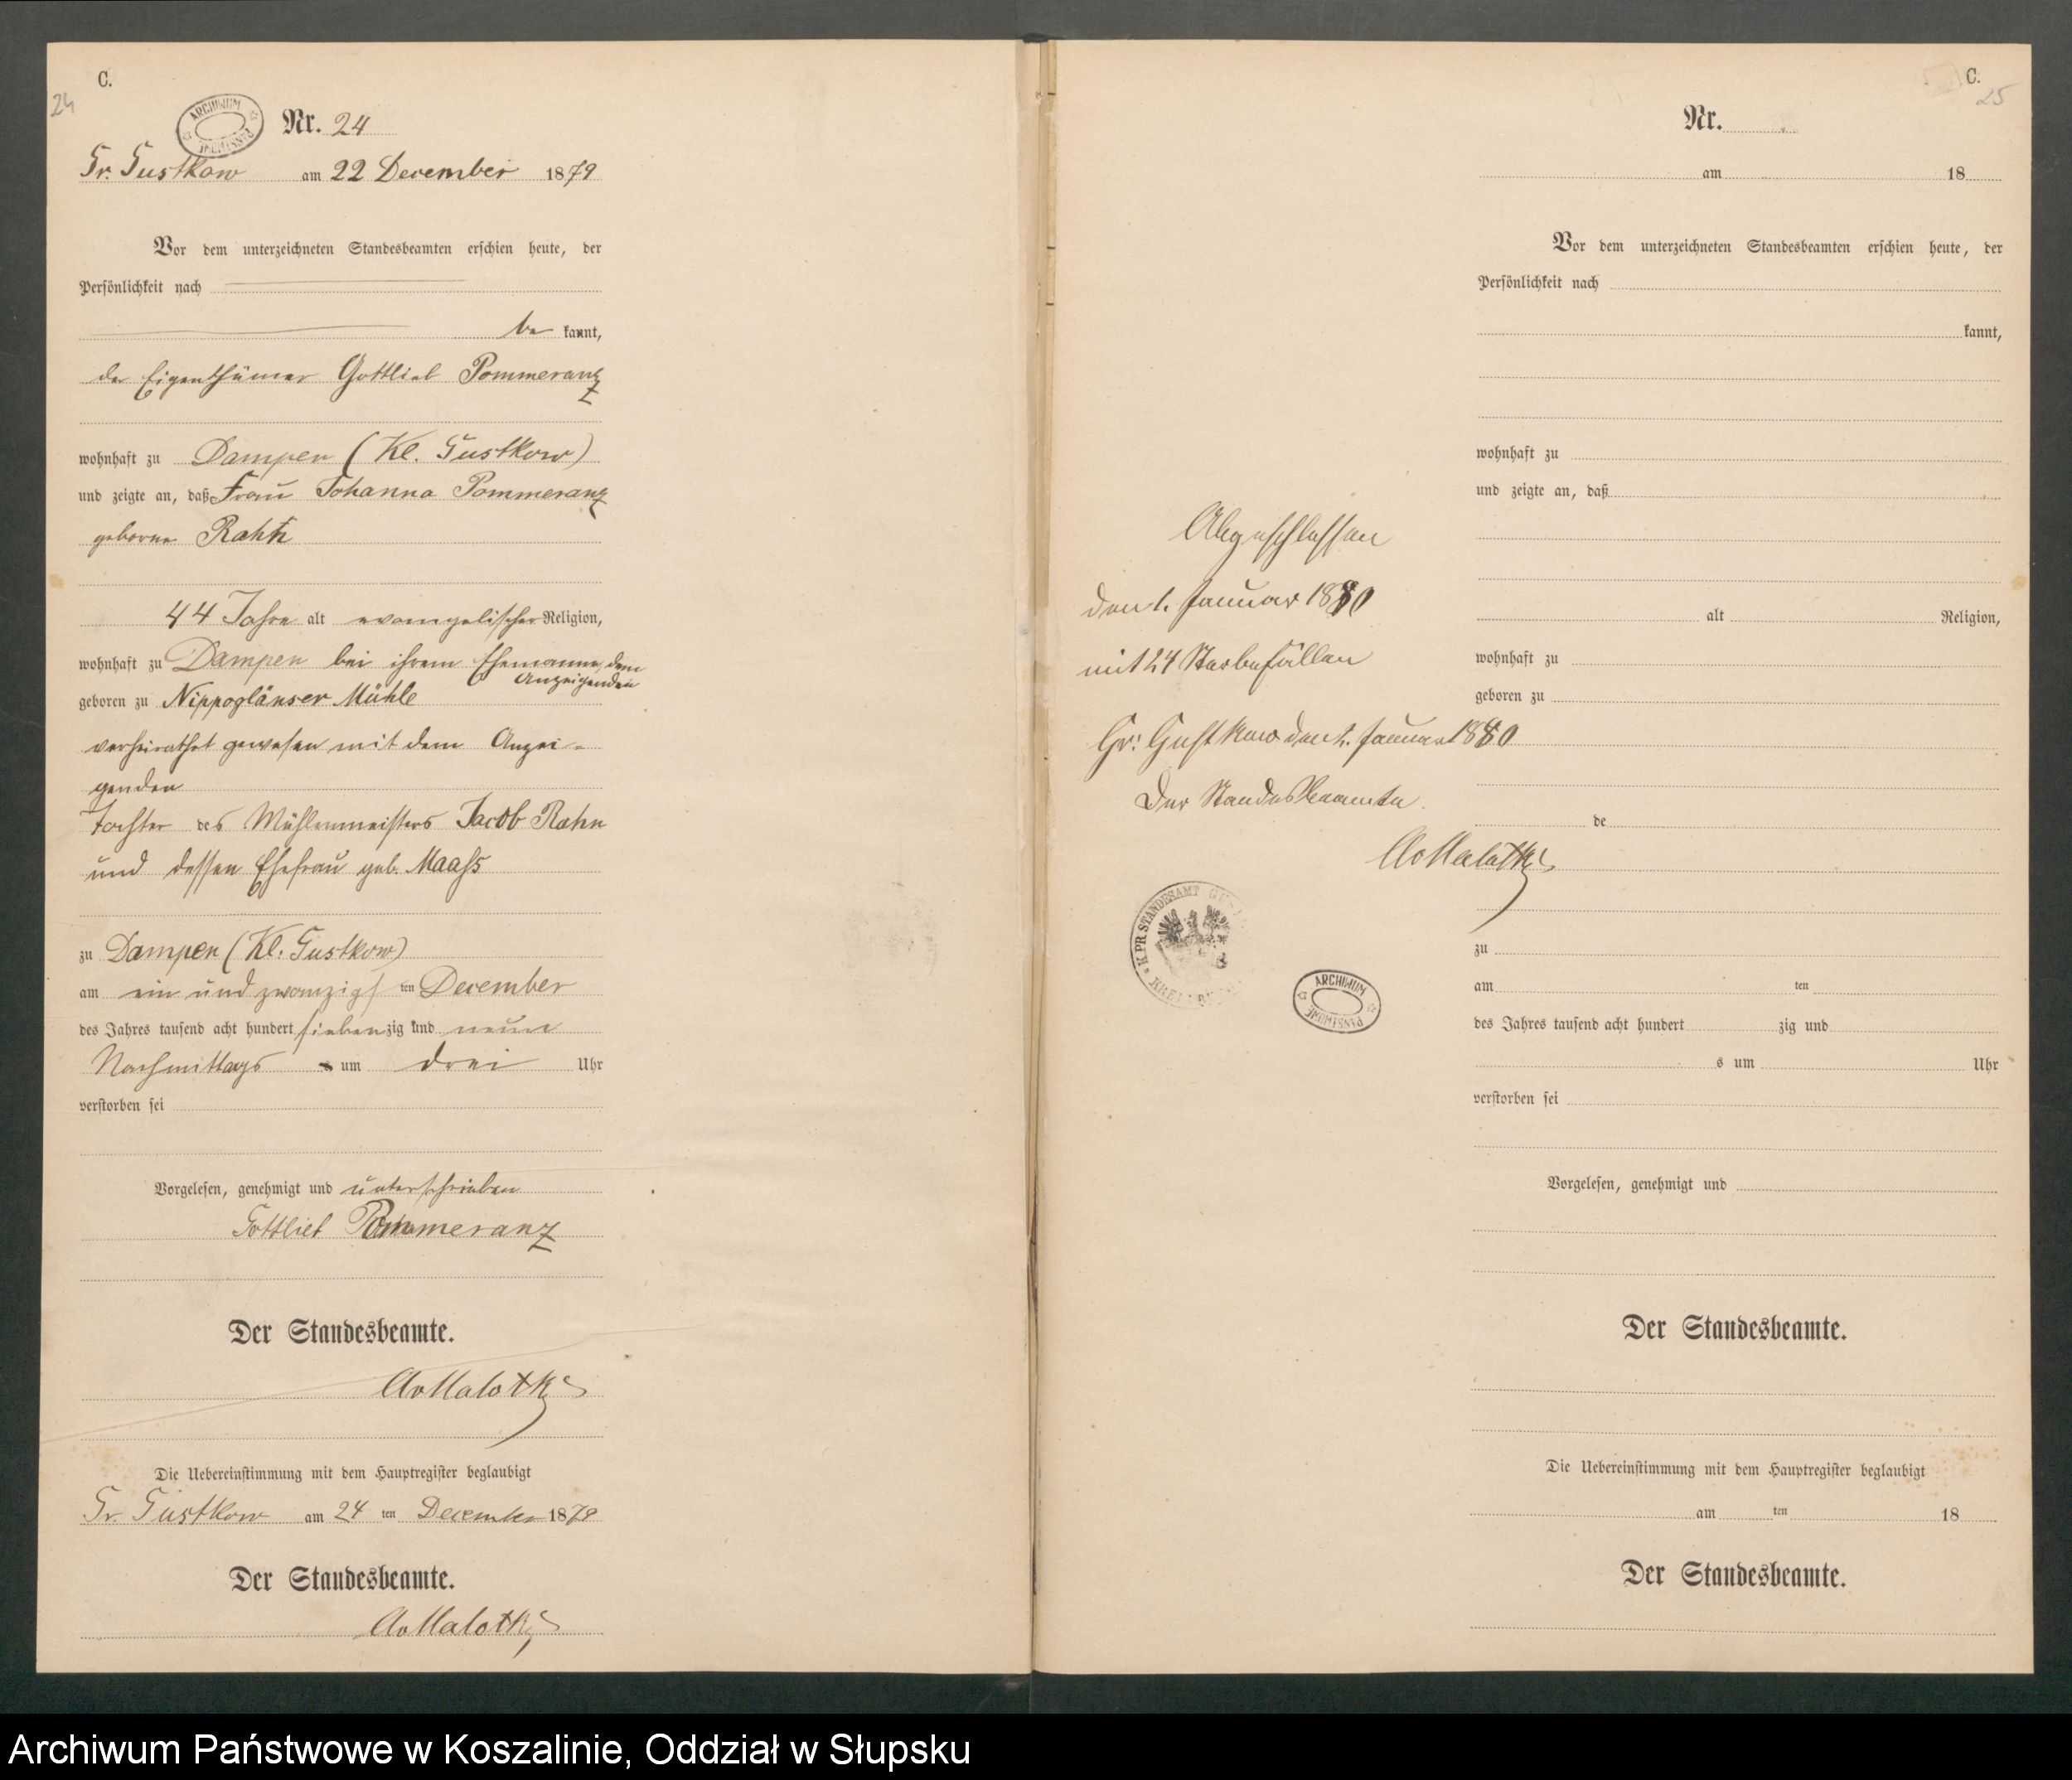 C.
24
ARCHIWUM PAŃSTWOWE
Nr. 24
Gr. Gustkow am 22 December 1879
Vor dem unterzeichneten Standesbeamten erschien heute, der
Persönlichkeit nach
be kannt,
der Eigenthümer Gottlieb Pommeranz
wohnhaft zu Dampen (Kl. Gustkow)
und zeigte an, daß Frau Johanna Pommeranz
geborne Rahn
44 Jahre alt evangelischer Religion,
wohnhaft zu Dampen bei ihrem Ehemanne, dem
Anzeigenden
geboren zu Nippoglänser Mühle
verheirathet gewesen mit dem Anzei-
genden
Tochter des Mühlenmeisters Jacob Rahn
und dessen Ehefrau geb. Maaß
zu Dampen (Kl. Gustkow)
am ein und zwanzigsten December
des Jahres tausend acht hundert siebenzig und neun
Nachmittags um drei Uhr
verstorben sei
Vorgelesen, genehmigt und unterschrieben
Gottlieb Pommeranz
Der Standesbeamte.
AvMalotki
Die Uebereinstimmung mit dem Hauptregister beglaubigt
Gr. Gustkow am 24 ten December 1879
Der Standesbeamte.
AvMalotki
C.
25
Nr.
am 18
Vor dem unterzeichneten Standesbeamten erschien heute, der
Persönlichkeit nach
kannt,
wohnhaft zu
und zeigte an, daß
alt Religion,
wohnhaft zu
geboren zu
de
zu
am ten
des Jahres tausend acht hundert zig und
s um Uhr
verstorben sei
Vorgelesen, genehmigt und
Der Standesbeamte.
Die Uebereinstimmung mit dem Hauptregister beglaubigt
am ten 18
Der Standesbeamte.
Abgeschlossen
den 1. Januar 1880
mit 24 Sterbefällen
Gr. Gustkow den 1. Januar 1880
Der Standesbeamte.
AvMalotki
K. PR. STANDESAMT
ARCHIWUM PAŃSTWOWE
Archiwum Państwowe w Koszalinie, Oddział w Słupsku